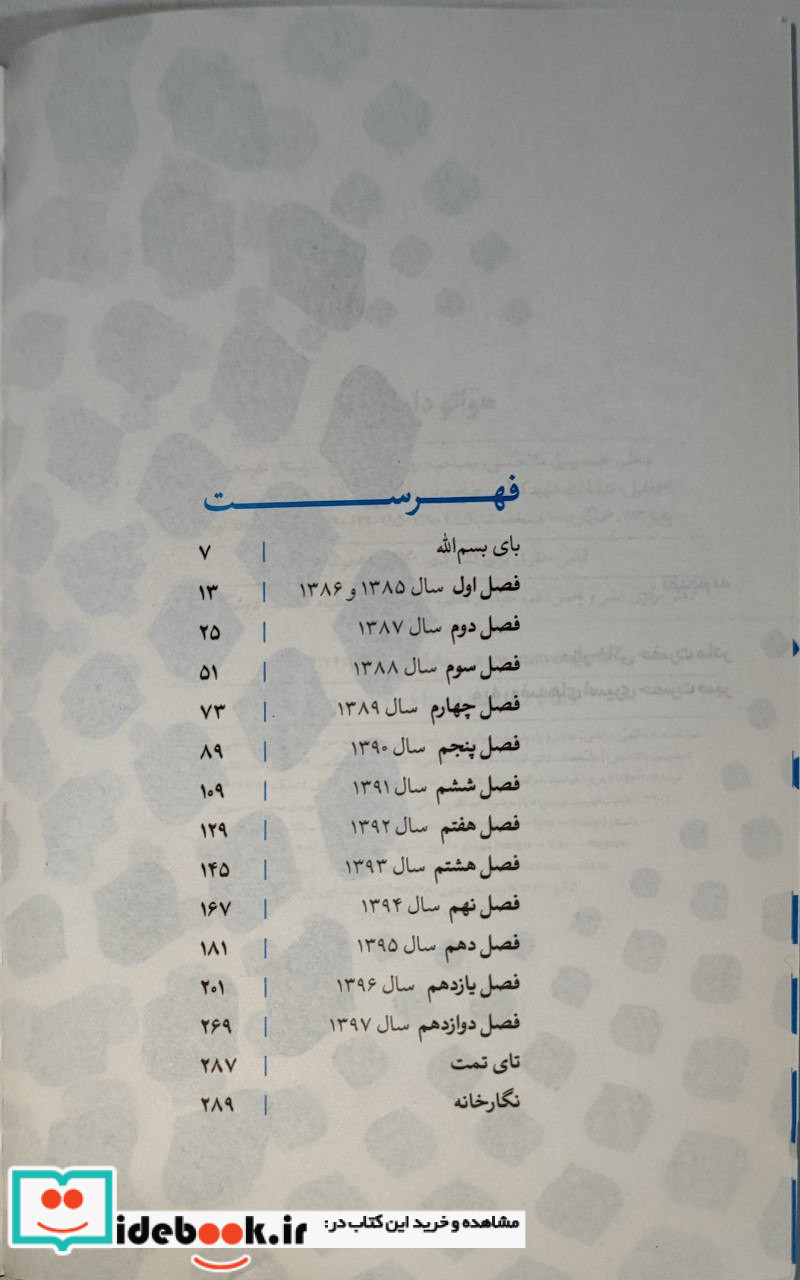 فهرست
بای بسم‌الله | ۷
فصل اول سال ۱۳۸۵ و ۱۳۸۶ | ۱۳
فصل دوم سال ۱۳۸۷ | ۲۵
فصل سوم سال ۱۳۸۸ | ۵۱
فصل چهارم سال ۱۳۸۹ | ۷۳
فصل پنجم سال ۱۳۹۰ | ۸۹
فصل ششم سال ۱۳۹۱ | ۱۰۹
فصل هفتم سال ۱۳۹۲ | ۱۲۹
فصل هشتم سال ۱۳۹۳ | ۱۴۵
فصل نهم سال ۱۳۹۴ | ۱۶۷
فصل دهم سال ۱۳۹۵ | ۱۸۱
فصل یازدهم سال ۱۳۹۶ | ۲۰۱
فصل دوازدهم سال ۱۳۹۷ | ۲۶۹
تای تمت | ۲۸۷
نگارخانه | ۲۸۹
مشاهده و خرید این کتاب در:
idebook.ir